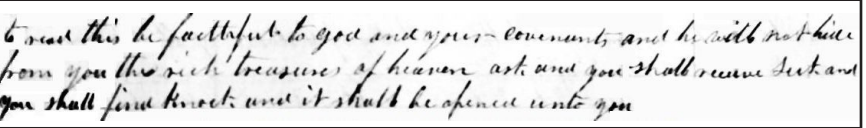 to read this be faithful to god and your covenants and he will not hide
from you the rich treasures of heaven ask and you shall receive Seek and
you shall find Knock and it shall be opened unto you